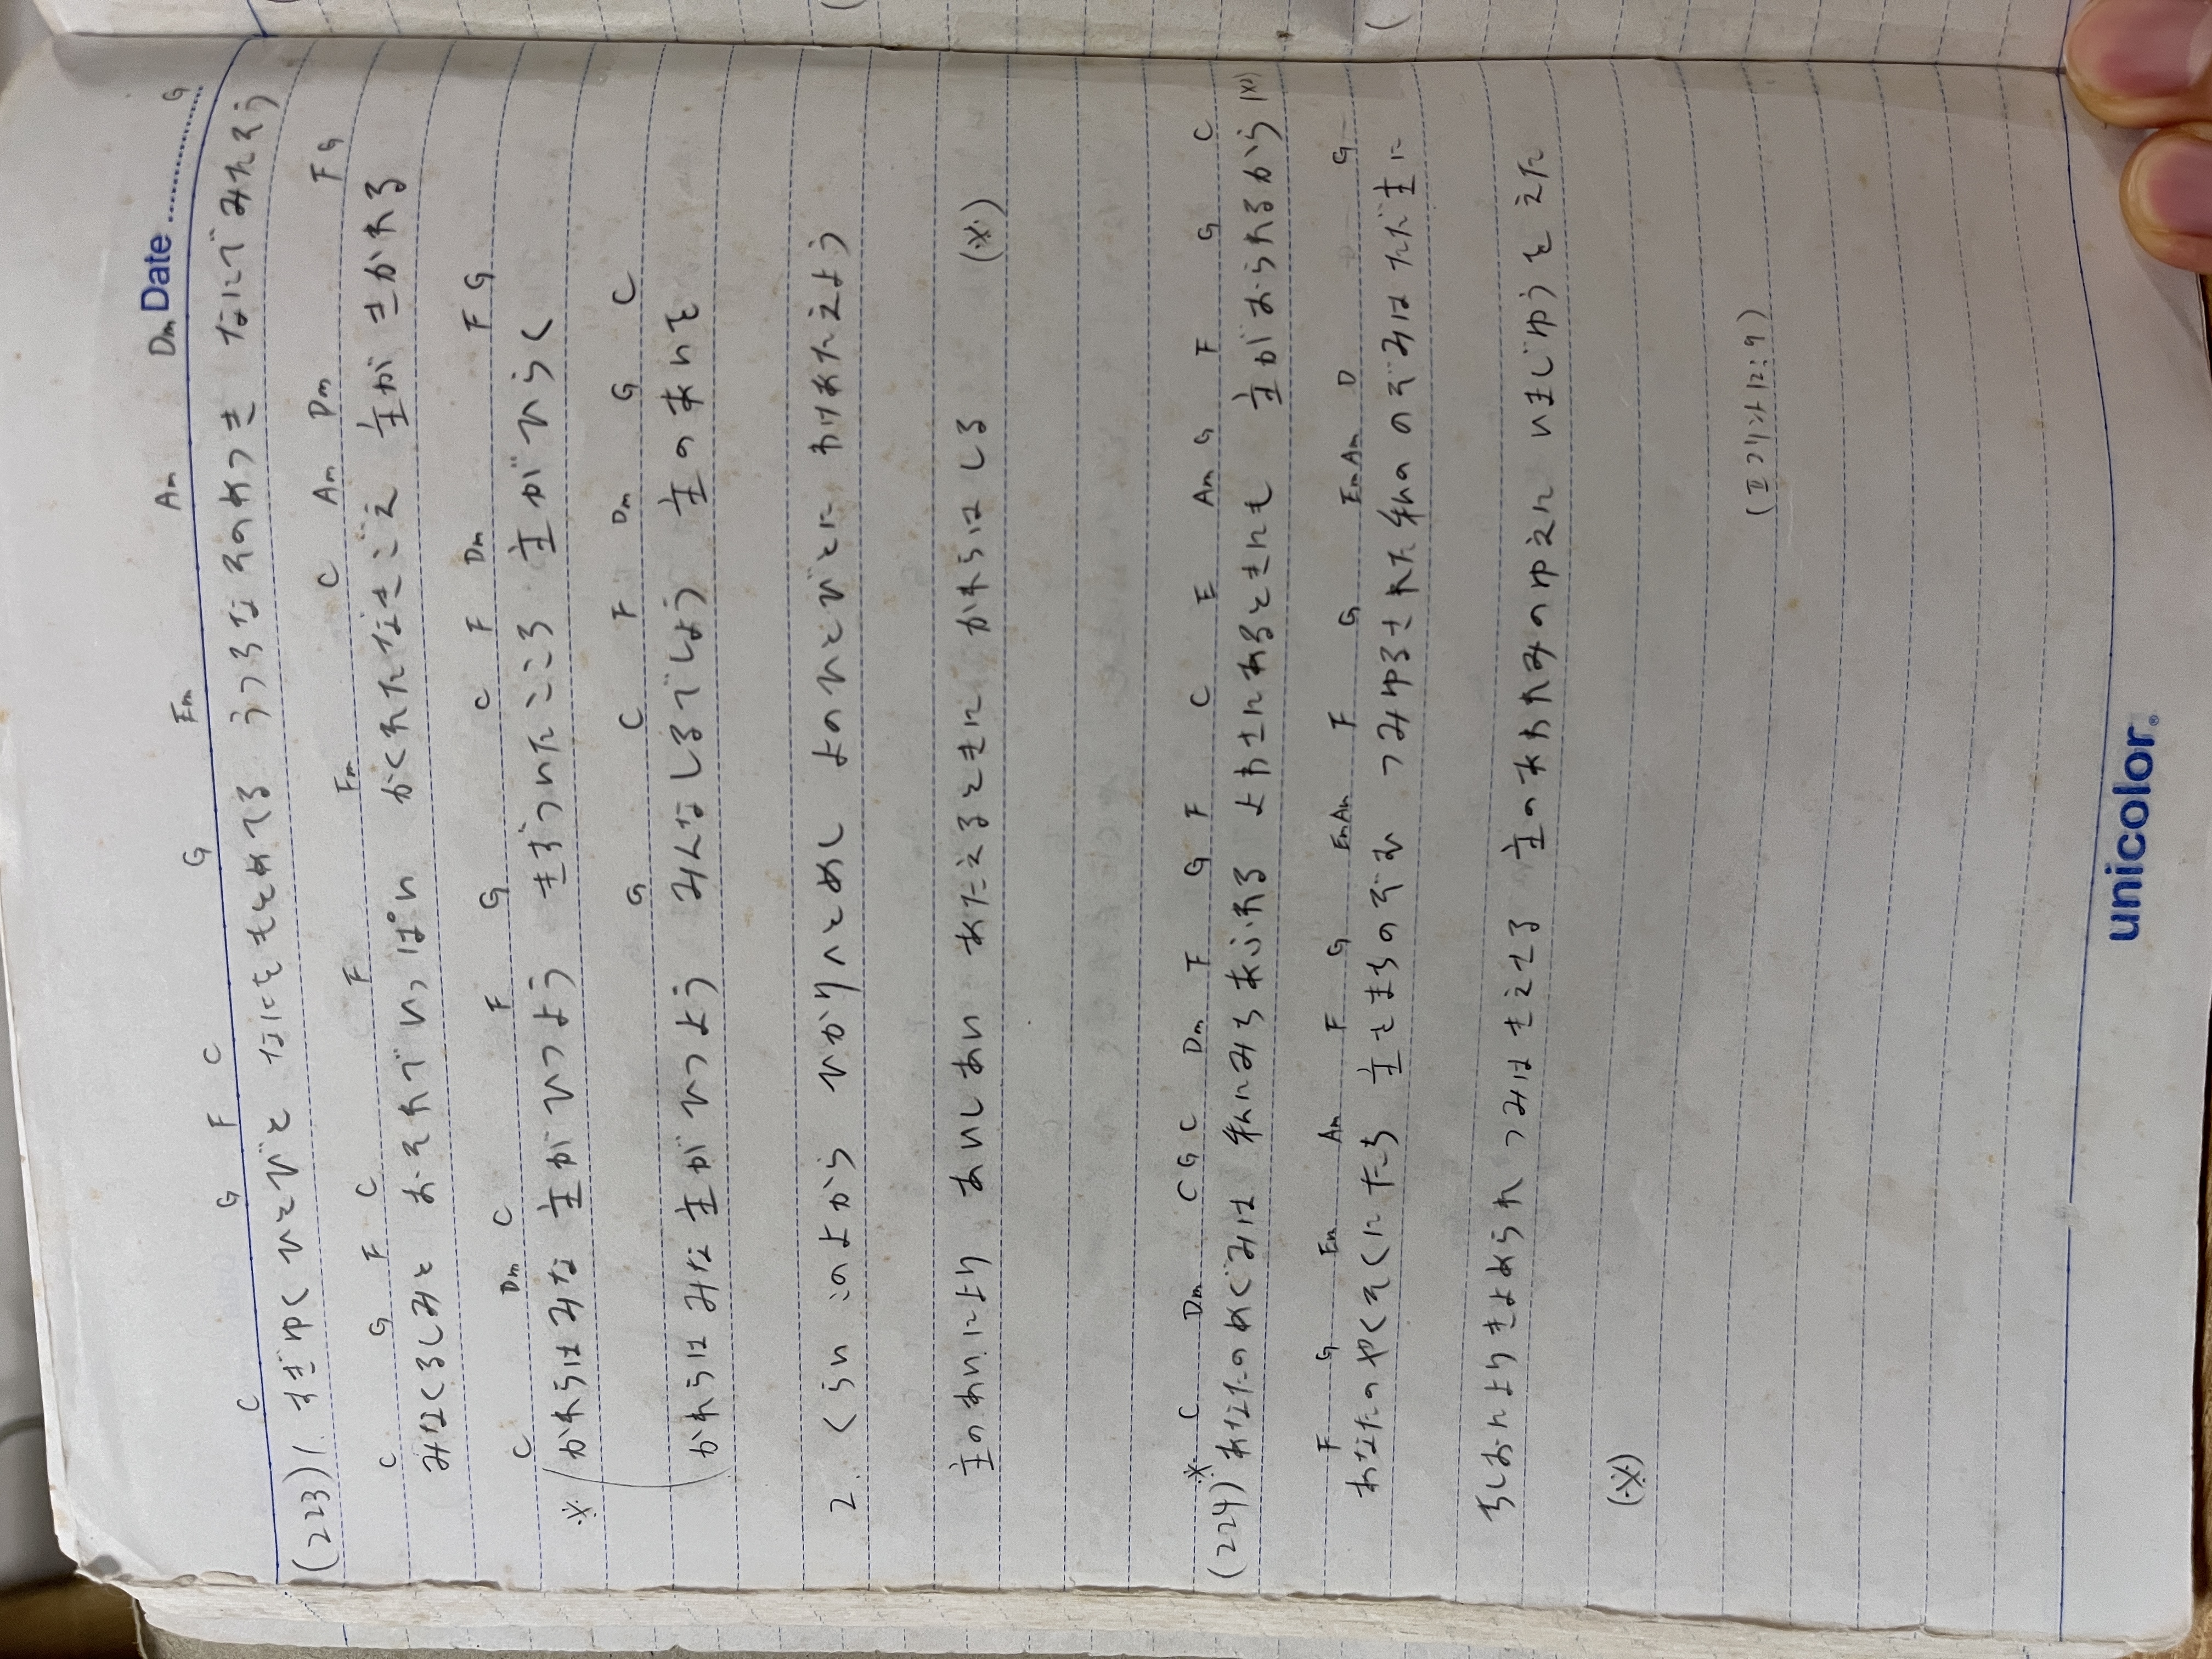 Date
C G F C G Em Am Dm G
(223) 1. すぎゆく ひとびと なにをもとめてる うつろなそのめつき なにでみたそう
C G F C F Em C Am Dm F G
みなくるしみと おそれでいっぱい かくれたなきごえ 主が きかれる
C Dm C F G C F Dm F G
※ かれらはみな 主がひつよう きずついたこころ 主がひらく
G C F Dm G C
かれらは みな 主が ひつよう みんなしるでしょう 主のあいを
2. くらい このよから ひかりへとめし よのひとびとに わけあたえよう
主のあいにより あいしあい あたえるときに かれらはしる (※)
※ C Dm C G C Dm F G F C E Am G F G C
(224) あなたのめぐみは 私にみちあふれる よわさにあるときにも 主がおられるから (※)
F G Em Am F G Em Am F G Em Am D G
あなたのやくそくにたち 主をまちのぞむ つみゆるされた私の のぞみはただ主に
ちしおによりきよめられ つみはきえさる 主のあわれみのゆえに いまじゆうをえた
(※)
(Ⅱコリント12:9)
unicolor